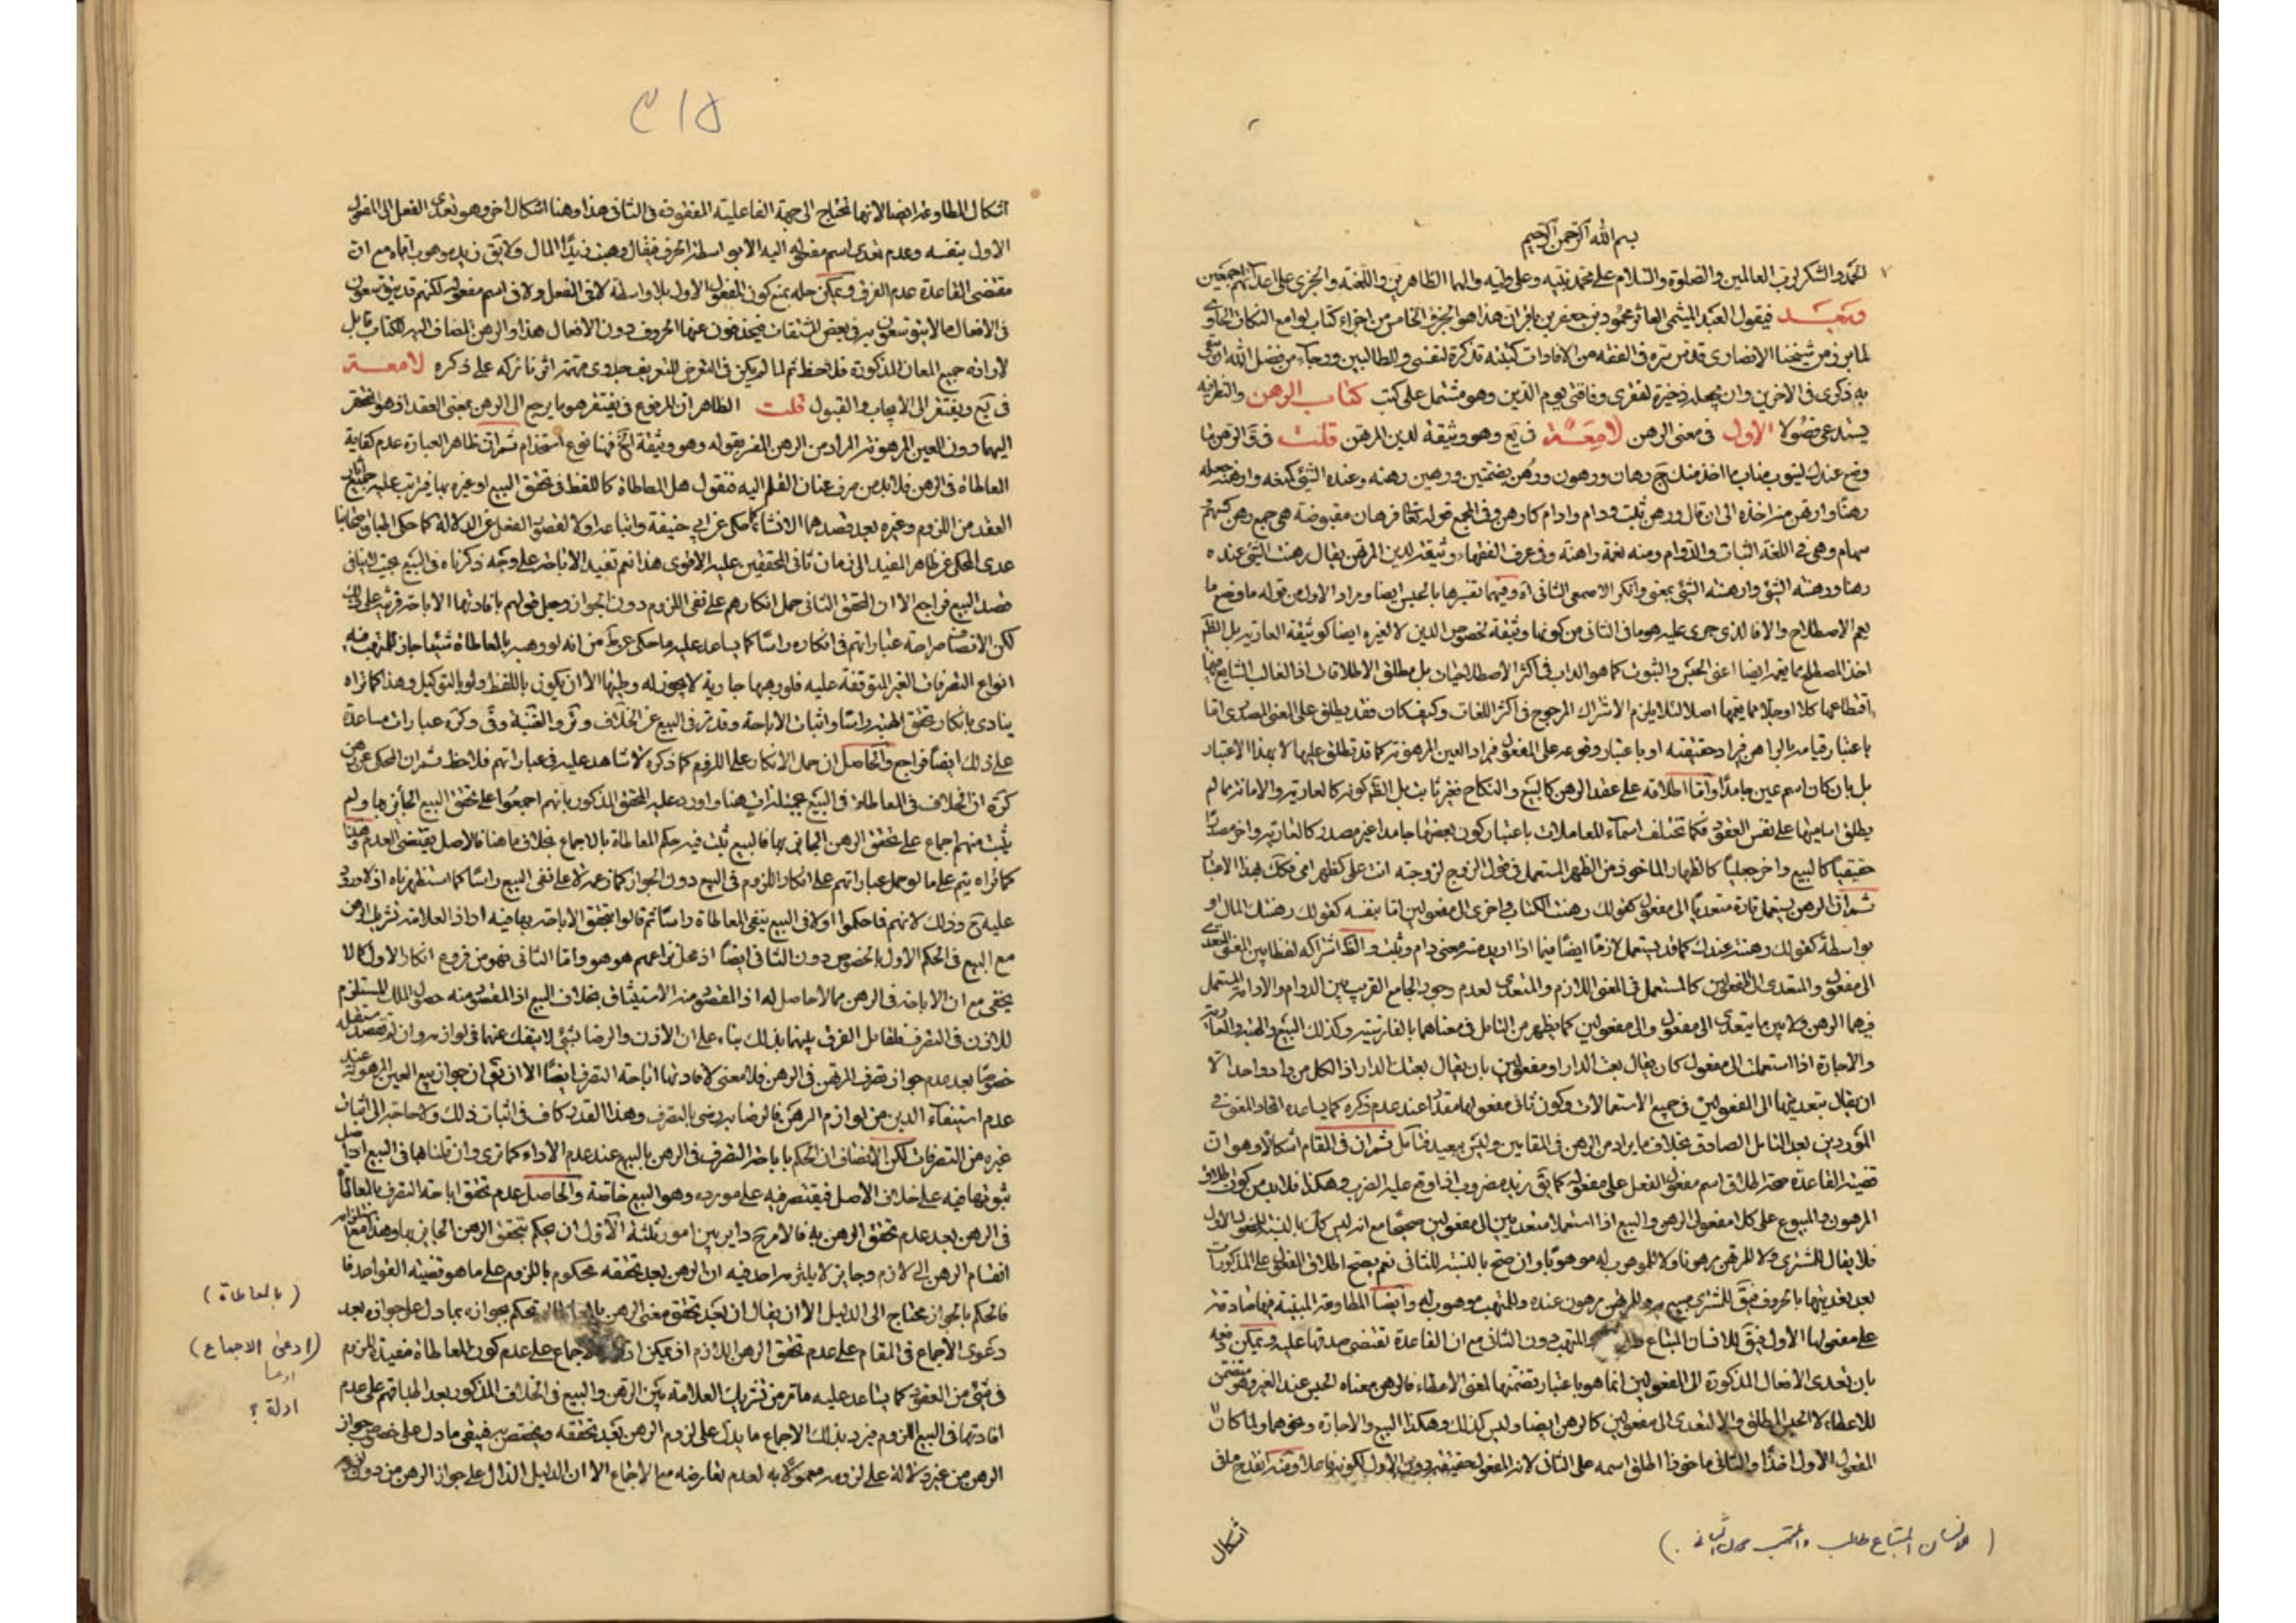 بسم الله الرحمن الرحيم
الحمد والشكر لرب العالمين والصلوة والسلام على محمد نبيه وعلى وليه والهما الطاهرين واللعنة والخزى على اعدائهم اجمعين
وبعد فيقول العبد الميثمى العاثر محمود بن جعفر بن باقر ان هذا هو الجزء الخامس من اجزاء كتاب لوامع النكات الحاوى
لما برز من شيخنا الانصارى قدس سره فى الفقه من الافادات كتبته تذكرة لنفسى وللطالبين ورجاء من فضل الله ان
به ذكرى فى الاخرين وان يجعله ذخيرة لفقرى وفاقتى يوم الدين وهو مشتمل على كتب كتاب الرهن والنظر فيه
يستدعى فصولا الاول فى معنى الرهن لامعة فى يع وهو وثيقة لدين المرتهن قلت فى ق الرهن ما
وضع عندك لينوب مناب ما اخذ منك ج رهان ورهون ورهن بضمتين ورهين رهنه وعنده الشئ كمنعه وارهنه جعله
رهنا وارتهن منه اخذه الى ان قال ورهن ثبت ودام وادام كارهن وفى المجمع قوله تعالى فرهان مقبوضة هى جمع رهن كسهم
سهام وهى فى اللغة الثبات والدوام ومنه نعمة راهنة وفى عرف الفقهاء وثيقة لدين المرتهن يقال رهنت الشئ عنده
رهنا ورهنته الشئ وارهنته الشئ بمعنى وانكر الاصمعى الثانى اه وفيهما تفسيرها بالحبس ايضا ومراد الاول من قوله ما وضع ما
يعم الاصطلاح والا فالذى جرى عليه هو ما فى الثانى من كونها وثيقة لخصوص الدين لا لغيره ايضا كوثيقة العارية بل الظ
اخذ المصطلح مما يعم ايضا اعنى الحبس والثبوت كما هو الداب فى اكثر الاصطلاحيات بل مطلق الاطلاقات اذ الغالب الشايع فيها
اقتطاعها كلا او جلا مما يعمها اصلا لئلا يلزم الاشتراك المرجوح فى اكثر اللغات وكيف كان فقد يطلق على المعنى المصدرى اما
باعتبار قيامه بالراهن فيراد حقيقته او باعتبار وقوعه على المفعول فيراد العين المرهونة كما قد تطلق عليها لا بهذا الاعتبار
بل بان كان اسم عين جامدا واما اطلاقه على عقد الرهن كالبيع والنكاح فغير ثابت بل الظ كونه كالعارية والامانة مما لم
يطلق اساميها على نفس العقود فكما تختلف اسماء المعاملات باعتبار كون بعضها جامدا غير مصدر كالعارية واخر مصدرا
حقيقيا كالبيع واخر جعليا كالظهار الماخوذ من الظهر المستعمل فى قول الزوج لزوجته انت على كظهر امى فكك بهذا الاعتبار
ثم ان الرهن يستعمل تارة متعديا الى مفعول كقولك رهنت الكتاب واخرى الى مفعولين اما بنفسه كقولك رهنتك المال او
بواسطة كقولك رهنته عندك كما قد يستعمل لازما ايضا فيما اذا اريد منه معنى دام وثبت والظ اشتراكه لفظا بين المعنى المتعدى
الى مفعول والمتعدى الى المفعولين كالمستعمل فى المعنى اللازم والمتعدى لعدم وجود الجامع القريب بين الدوام والادامة المستعمل
فيهما الرهن ولا بين ما يتعدى الى مفعول والى مفعولين كما يظهر من التامل فى معناهما بالفارسية وكذلك البيع والهبة والعارية
والاجارة اذا استعملت الى مفعول كان يقال بعت الدار او مفعولين بان يقال بعتك الدار اذ الكل من واد واحد الا
ان يقال بتعديتها الى المفعولين فى جميع الاستعمالات وكون ثانى مفعولها مقدرا عند عدم ذكره كما يساعده اتحاد المعنى فى
الموردين بعد التامل الصادق بخلاف ما يراد من الرهن فى المقامين وليس ببعيد فتامل ثم ان فى المقام اشكالا وهو ان
قضية القاعدة صحة اطلاق اسم مفعول الفعل على مفعوله كما يق زيد مضروب اذا وقع عليه الضرب وهكذا فلابد من كون اطلاق
المرهون والمبيوع على كلا مفعولى الرهن والبيع اذا استعملا متعديين الى مفعولين صحيحا مع انه ليس كك بالنسبة للمفعول الاول
فلا يقال للمشترى ولا للمرتهن مرهونا ولا للموهوب له موهوبا وان صح بالنسبة للثانى نعم يصح اطلاق المفعول على المذكورات
بعد تعديتها بالحروف فيق للمشترى مبيع منه وللمرتهن مرهون عنده وللمتهب موهوب له وايضا المطاوعة المبنية فيها صادقة
على مفعولها الاول فيق للانسان المبتاع المتهب دون الثانى مع ان القاعدة تقتضى صدقها عليه ويمكن دفعه
بان تعدى الافعال المذكورة الى المفعولين انما هو باعتبار تضمنها لمعنى الاعطاء فالرهن معناه الحبس عند الغير وهو متضمن
للاعطاء لا الحبس المطلق والا لتعدى الى مفعولين كالرهن ايضا وليس كذلك وهكذا البيع والاجارة ونحوهما ولما كان
المفعول الاول اخذا والثانى ماخوذا اطلق اسمه على الثانى لانه المفعول حقيقة دون الاول لكونه فاعلا ومنه انقدح ملق
اشكال
(للانسان المبتاع طالب والمتهب دون الثانى.)
٣١٥
اشكال المطاوعة ايضا لانها تحتاج الى جهة الفاعلية المفقودة فى الثانى هذا وهنا اشكال اخر وهو تعدى الفعل الى المفعول
الاول بنفسه وعدم تعدى اسم مفعوله اليه الا بواسطة الحرف فيقال وهبت زيدا المال ولا يق زيد موهوب اياه مع ان
مقتضى القاعدة عدم الفرق ويمكن حله بمنع كون المفعول الاول بلا واسطة لا فى الفعل ولا فى اسم مفعوله لكنهم قد يتوسعون
فى الافعال ما لا يتوسعون به فى بعض المشتقات فيحذفون عنها الحروف دون الافعال هذا والرهن المضاف اليه للكتاب قابل
لارادة جميع المعانى المذكورة فلاحظ ثم لما لم يكن فى التعرض للتعريف جدوى مهمة اثرنا تركه على ذكره لامعة
فى يع ويفتقر الى الايجاب والقبول قلت الظاهر ان المرفوع فى يفتقر هو ما يرجع الى الرهن بمعنى العقد اذ هو المفتقر
اليهما دون العين المرهونة المراد من الرهن المفسر بقوله وهو وثيقة الخ ففيها نوع استخدام ثم ان ظاهر العبارة عدم كفاية
المعاطاة فى الرهن فلابد من صرف عنان القلم اليه فنقول هل المعاطاة كاللفظ فى تحقق البيع او غيره بها فيترتب عليه جميع اثار
العقد من اللزوم وغيره بعد قصدهما الانشاء كما حكى عن ابى حنيفة واتباعه او لا لقصور الفعل عن الدلالة كما حكى اطباق اصحابنا
عدى المحكى عن ظاهر المفيد الى زمان ثانى المحققين عليه الاقوى هذا نعم تفيد الاباحة على وجه ذكرناه فى البيع بحيث لا ينافى
قصد البيع فراجع الا ان المحقق الثانى حمل انكارهم على نفى اللزوم دون الجواز وجعل قولهم بافادتها الاباحة قرينة على ذلك
لكن الانصاف صراحة عباراتهم فى انكاره راسا كما يساعد عليه ما حكى عن ط من انه لو وهبه بالمعاطاة شيئا جاز للمتهب فيه
انواع التصرفات الغير المتوقفة عليه فلو وهبها جارية لا يجوز له وطيها الا ان يكون باللفظ ولو بالتوكيل وهذا كما تراه
ينادى بانكار تحقق الهبة راسا واثبات الاباحة وقد مر فى البيع عن الخلاف وئر والغنية وفى وكره عبارات مساعدة
على ذلك ايضا فراجع والحاصل ان حمل الانكار على اللزوم كما ذكره لا شاهد عليه فى عباراتهم فلاحظ ثم ان المحكى عن رهن
كره ان الخلاف فى المعاطاة فى البيع عمينه ات هنا واورد عليه المحقق المذكور بانهم اجمعوا على تحقق البيع الجائز بها ولم
يثبت منهم اجماع على تحقق الرهن الجائز بها فالبيع ثبت فيه حكم المعاطاة بالاجماع بخلاف ما هنا فالاصل يقتضى العدم وهذا
كما تراه يتم على ما لو حمل عباراتهم على انكار اللزوم فى البيع دون الجواز كما زعمه لا على نفى البيع راسا كما استظهرناه اذ لا ورود
عليه ح وذلك لانهم فاحكموا اولا فى البيع بنفى المعاطاة راسا ثم قالوا بتحقق الاباحة بها فيه اراد العلامة تشريك الرهن
مع البيع فى الحكم الاول بالخصوص دون الثانى ايضا اذ محل نزاعهم هو هو واما الثانى فهو من فروع انكار الاول كما لا
يخفى مع ان الاباحة فى الرهن مما لا حاصل له اذ المقصود منه الاستيثاق بخلاف البيع اذ المقصود منه حصول الملك المستلزم
للاذن فى التصرف فلقائل الفرق بينهما بذلك بناء على ان الاذن والرضا بشئ لا ينفك عنهما فى لوازمه وان لم يقصد مستقله
خصوصا بعد عدم جواز تصرف المرتهن فى الرهن فلا معنى لافادتها اباحة التصرف ايضا الا ان يق ان جواز بيع العين المرهونة عند
عدم استيفاء الدين من لوازم الرهن فالرضا به رضى بالتصرف وهذا القدر كاف فى اثبات ذلك ولا حاجة الى اثبات
غيره من التصرفات لكن الانصاف ان الحكم باباحة التصرف فى الرهن بالبيع عند عدم الاداء كما ترى وان قلناها فى البيع اذ اصل
ثبوتها فيه على خلاف الاصل فيقتصر فيه على مورده وهو البيع خاصة والحاصل عدم تحقق اباحة التصرف بالمعاطاة
فى الرهن بعد عدم تحقق الرهن به فالامر ح داير بين امور ثلثة الاول ان يحكم بتحقق الرهن الجائز بها وهذا مع
انقسام الرهن الى لازم وجايز لا يلتزمه احد فيه ان الرهن بعد تحققه محكوم باللزوم على ما هو قضية القواعد فا
فالحكم بالجواز محتاج الى الدليل الا ان يقال ان بعد تحقق معنى الرهن نحكم بجوازه بما دل على جوازه بعد
دعوى الاجماع فى المقام على عدم تحقق الرهن اللازم اذ يمكن الاجماع على عدم كون المعاطاة مفيدة للزوم
فى شئ من العقود كما يساعد عليه ما مر من تشريك العلامة بين الرهن والبيع فى الخلاف المذكور بعد اطباقهم على عدم
افادتها فى البيع اللزوم فيرد بذلك الاجماع ما يدل على لزوم الرهن بعد تحققه ويختص به فيبقى ما دل على خصوص جواز
الرهن من غير دلالة على لزومه معمولا به لعدم تعارضه مع الاجماع الا ان الدليل الدال على جواز الرهن من دون لزومه
(بالمعاطاة)
(ادعى الاجماع)
ادعا
ادلة ؟